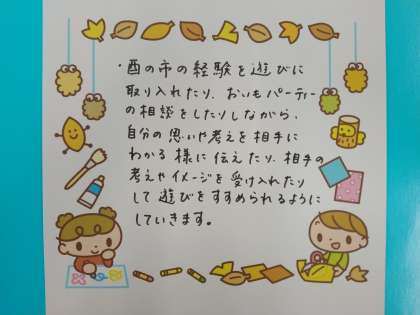 ・酉の市の経験を遊びに
取り入れたり、おいもパーティー
の相談をしたりしながら、
自分の思いや考えを相手に
わかる様に伝えたり、相手の
考えやイメージを受け入れたり
して遊びをすすめられるように
していきます。